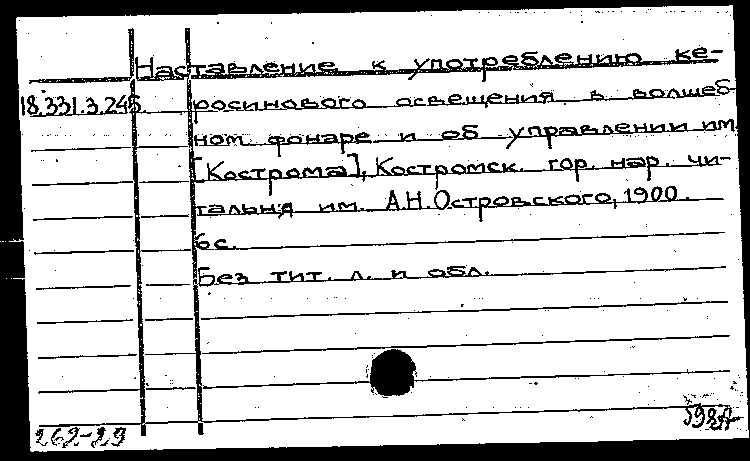 Наставление к употреблению ке-
18.331.3.245. росинового освещения в волшеб-
ном фонаре и об управлении им
[Кострома], Костромск. гор. нар. чи-
тальня им. А.Н.Островского, 1900.
6 с.
Без тит. л. и обл.
262-29